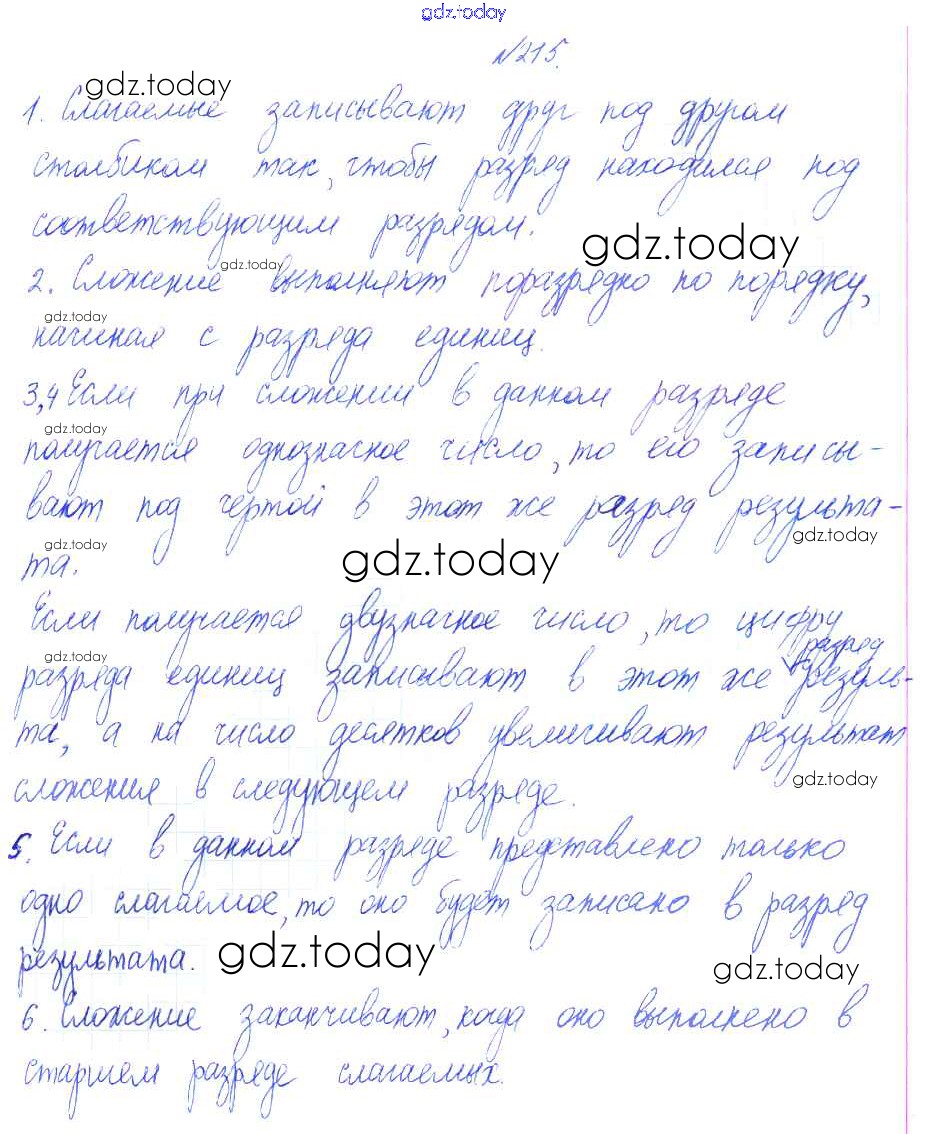 gdz.today
№215.
gdz.today
1. Слагаемые записывают друг под другом
столбиком так, чтобы разряд находился под
соответствующим разрядом.
gdz.today
gdz.today
2. Сложение выполняют поразрядно по порядку,
gdz.today
начиная с разряда единиц.
3,4 Если при сложении в данном разряде
gdz.today
получается однозначное число, то его записы-
вают под чертой в этот же разряд результа-
gdz.today
gdz.today
gdz.today
та.
Если получается двузначное число, то цифру
разряд
gdz.today
разряда единиц записывают в этот же резуль-
та, а на число десятков увеличивают результат
gdz.today
сложения в следующем разряде.
5. Если в данном разряде представлено только
одно слагаемое, то оно будет записано в разряд
результата.
gdz.today
gdz.today
6. Сложение заканчивают, когда оно выполнено в
старшем разряде слагаемых.